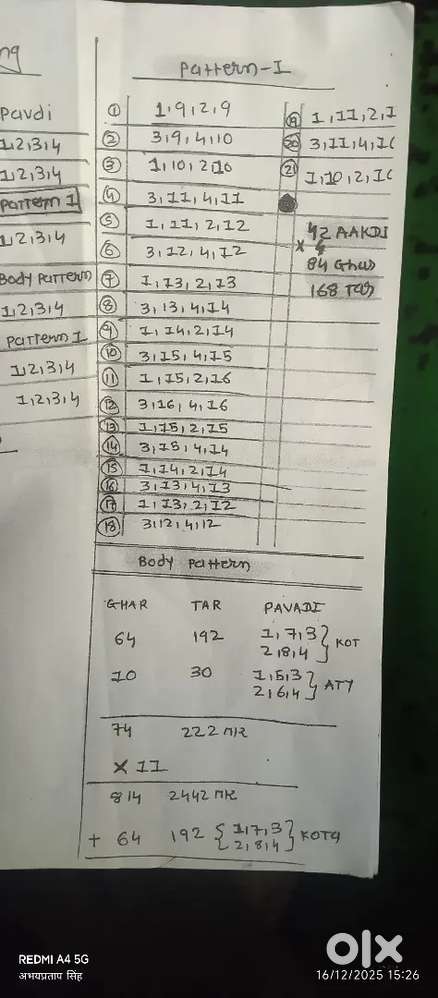 ng
Pavdi
1,2,3,4
1,2,3,4
Pattern 1
1,2,3,4
Body Pattern
1,2,3,4
Pattern 1
1,2,3,4
1,2,3,4
Pattern-I
① 1,9,2,9
② 3,9,4,10
③ 1,10,2,10
④ 3,11,4,11
⑤ 1,11,2,12
⑥ 3,12,4,12
⑦ 1,13,2,13
⑧ 3,13,4,14
⑨ 1,14,2,14
⑩ 3,15,4,15
⑪ 1,15,2,16
⑫ 3,16,4,16
⑬ 1,15,2,15
⑭ 3,15,4,14
⑮ 1,14,2,14
⑯ 3,13,4,13
⑰ 1,13,2,12
⑱ 3,12,4,12
⑲ 1,11,2,1
⑳ 3,11,4,10
㉑ 1,10,2,10
42 AAKDI
84 Ghar
168 Tar
Body Pattern
GHAR TAR PAVADI
64 192 1,7,3
2,8,4 } KOT
10 30 1,5,3
2,6,4 } ATY
74 222
X 11
814 2442
+ 64 192 { 1,7,3
2,8,4 }
REDMI A4 5G
अभयप्रताप सिंह
olx
16/12/2025 15:26